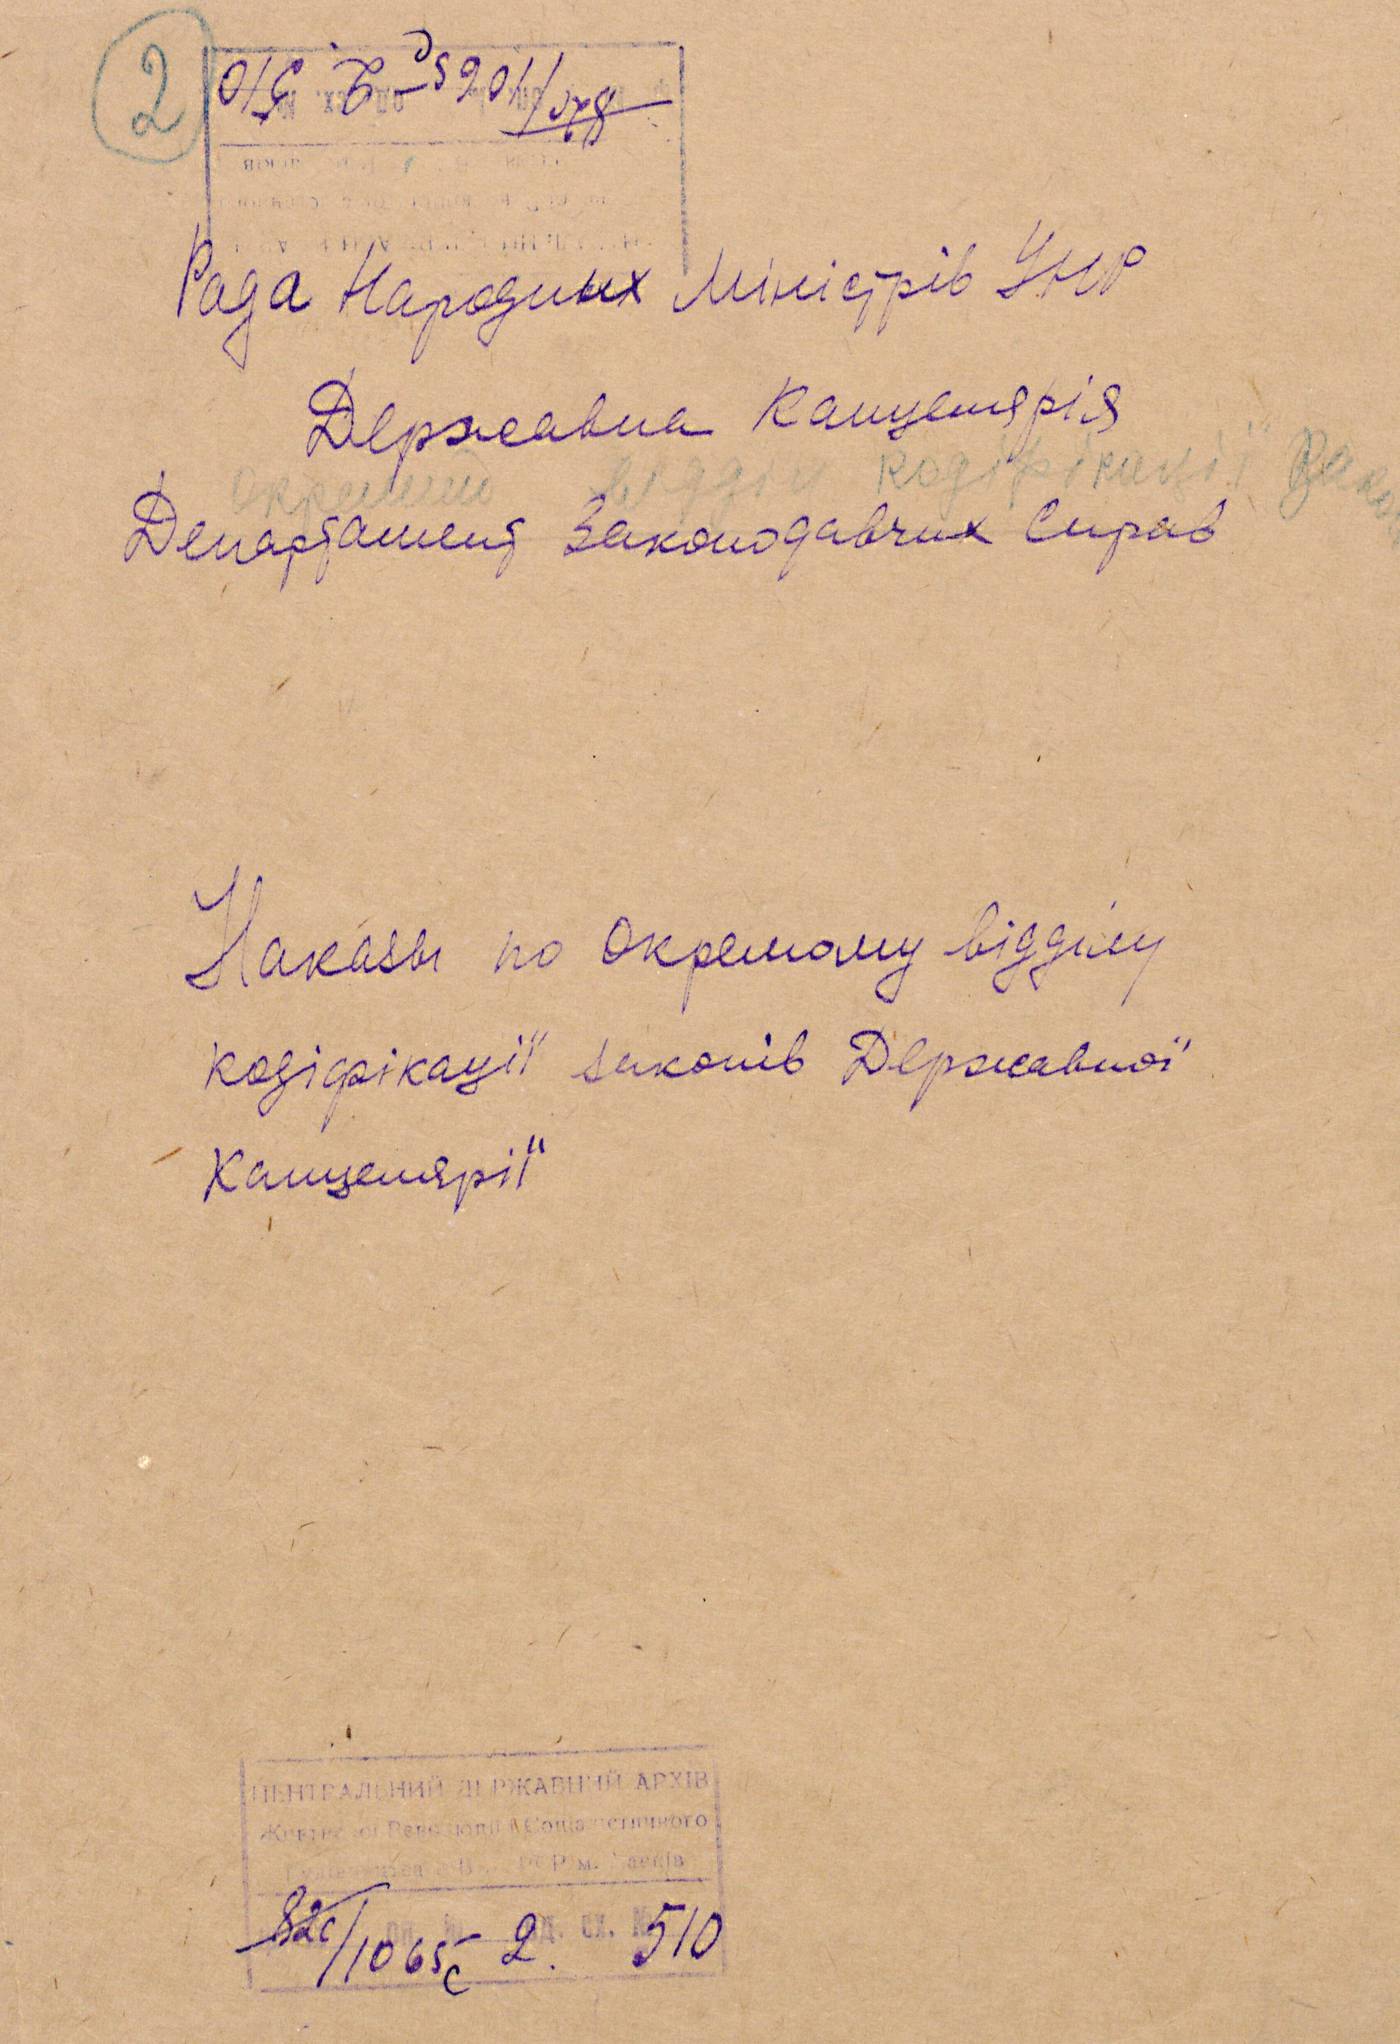 2
82с/1065с 2 510
Рада Народних Міністрів УНР
Державна Канцелярія
Окремий відділ кодіфікації Зако
Департамент Законодавчих Справ
Наказы по Окремому відділу
кодіфікації законів Державної
Канцелярії
ЦЕНТРАЛЬНИЙ ДЕРЖАВНИЙ АРХІВ
Жовтневої Революції і Соціалістичного
м. Харків
82с/1065с 2. 510